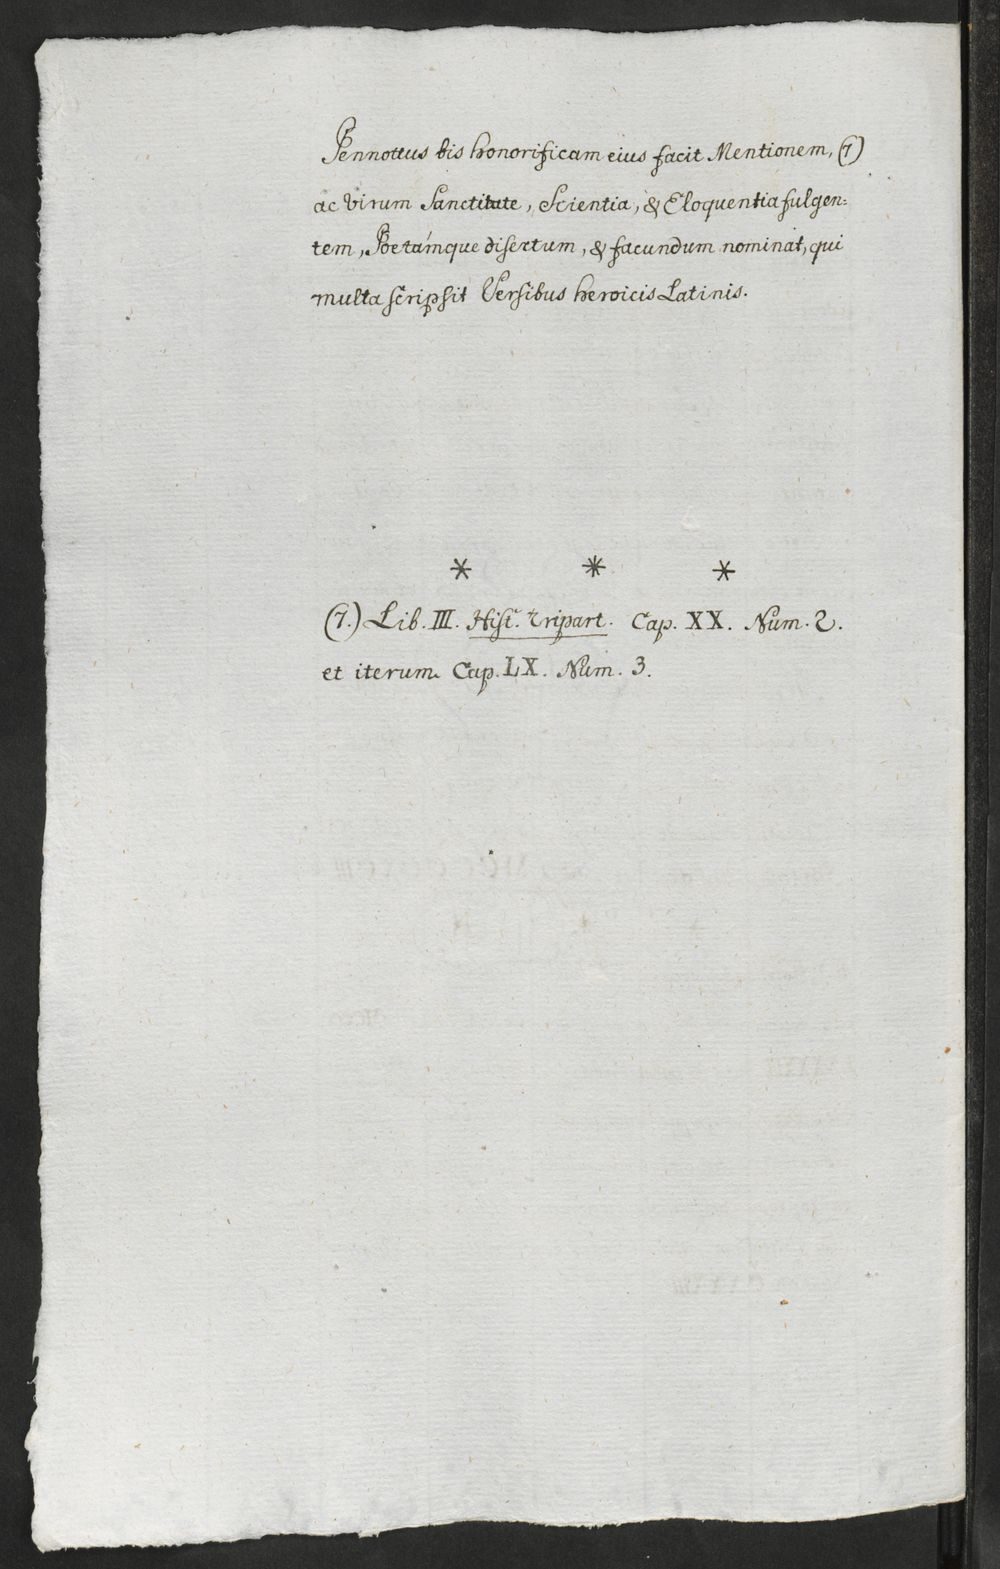 Pennottus bis honorificam eius facit Mentionem, (7)
ac virum Sanctitate, Scientia, & Eloquentia fulgen=
tem, Poetámque disertum, & facundum nominat, qui
multa scripsit Versibus heroicis Latinis.
* * *
(7.) Lib. III. Hist. Tripart. Cap. XX. Num. 2.
et iterum Cap. LX. Num. 3.